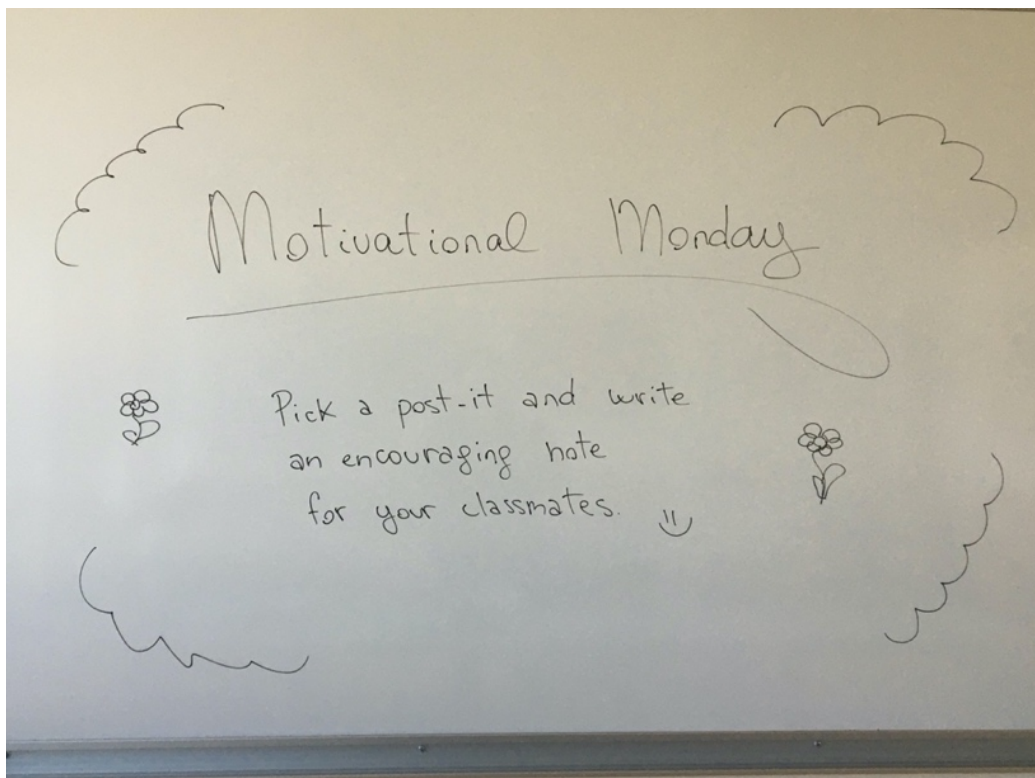 Motivational Monday
Pick a post-it and write
an encouraging note
for your classmates.